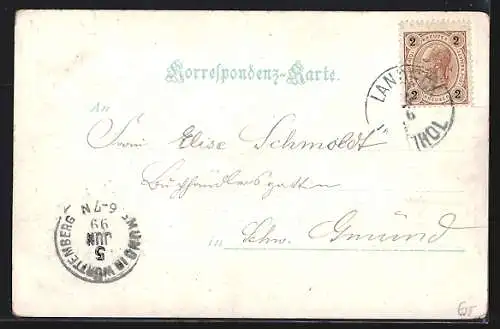 Korrespondenz-Karte.
2 2
2 2
LAN
6
TIROL
An
Frau Elise Schmoldt
Buchhändlersgattin
in Schw. Gmünd
GMÜND IN WÜRTTEMBERG
5
JUN
99
6-7N